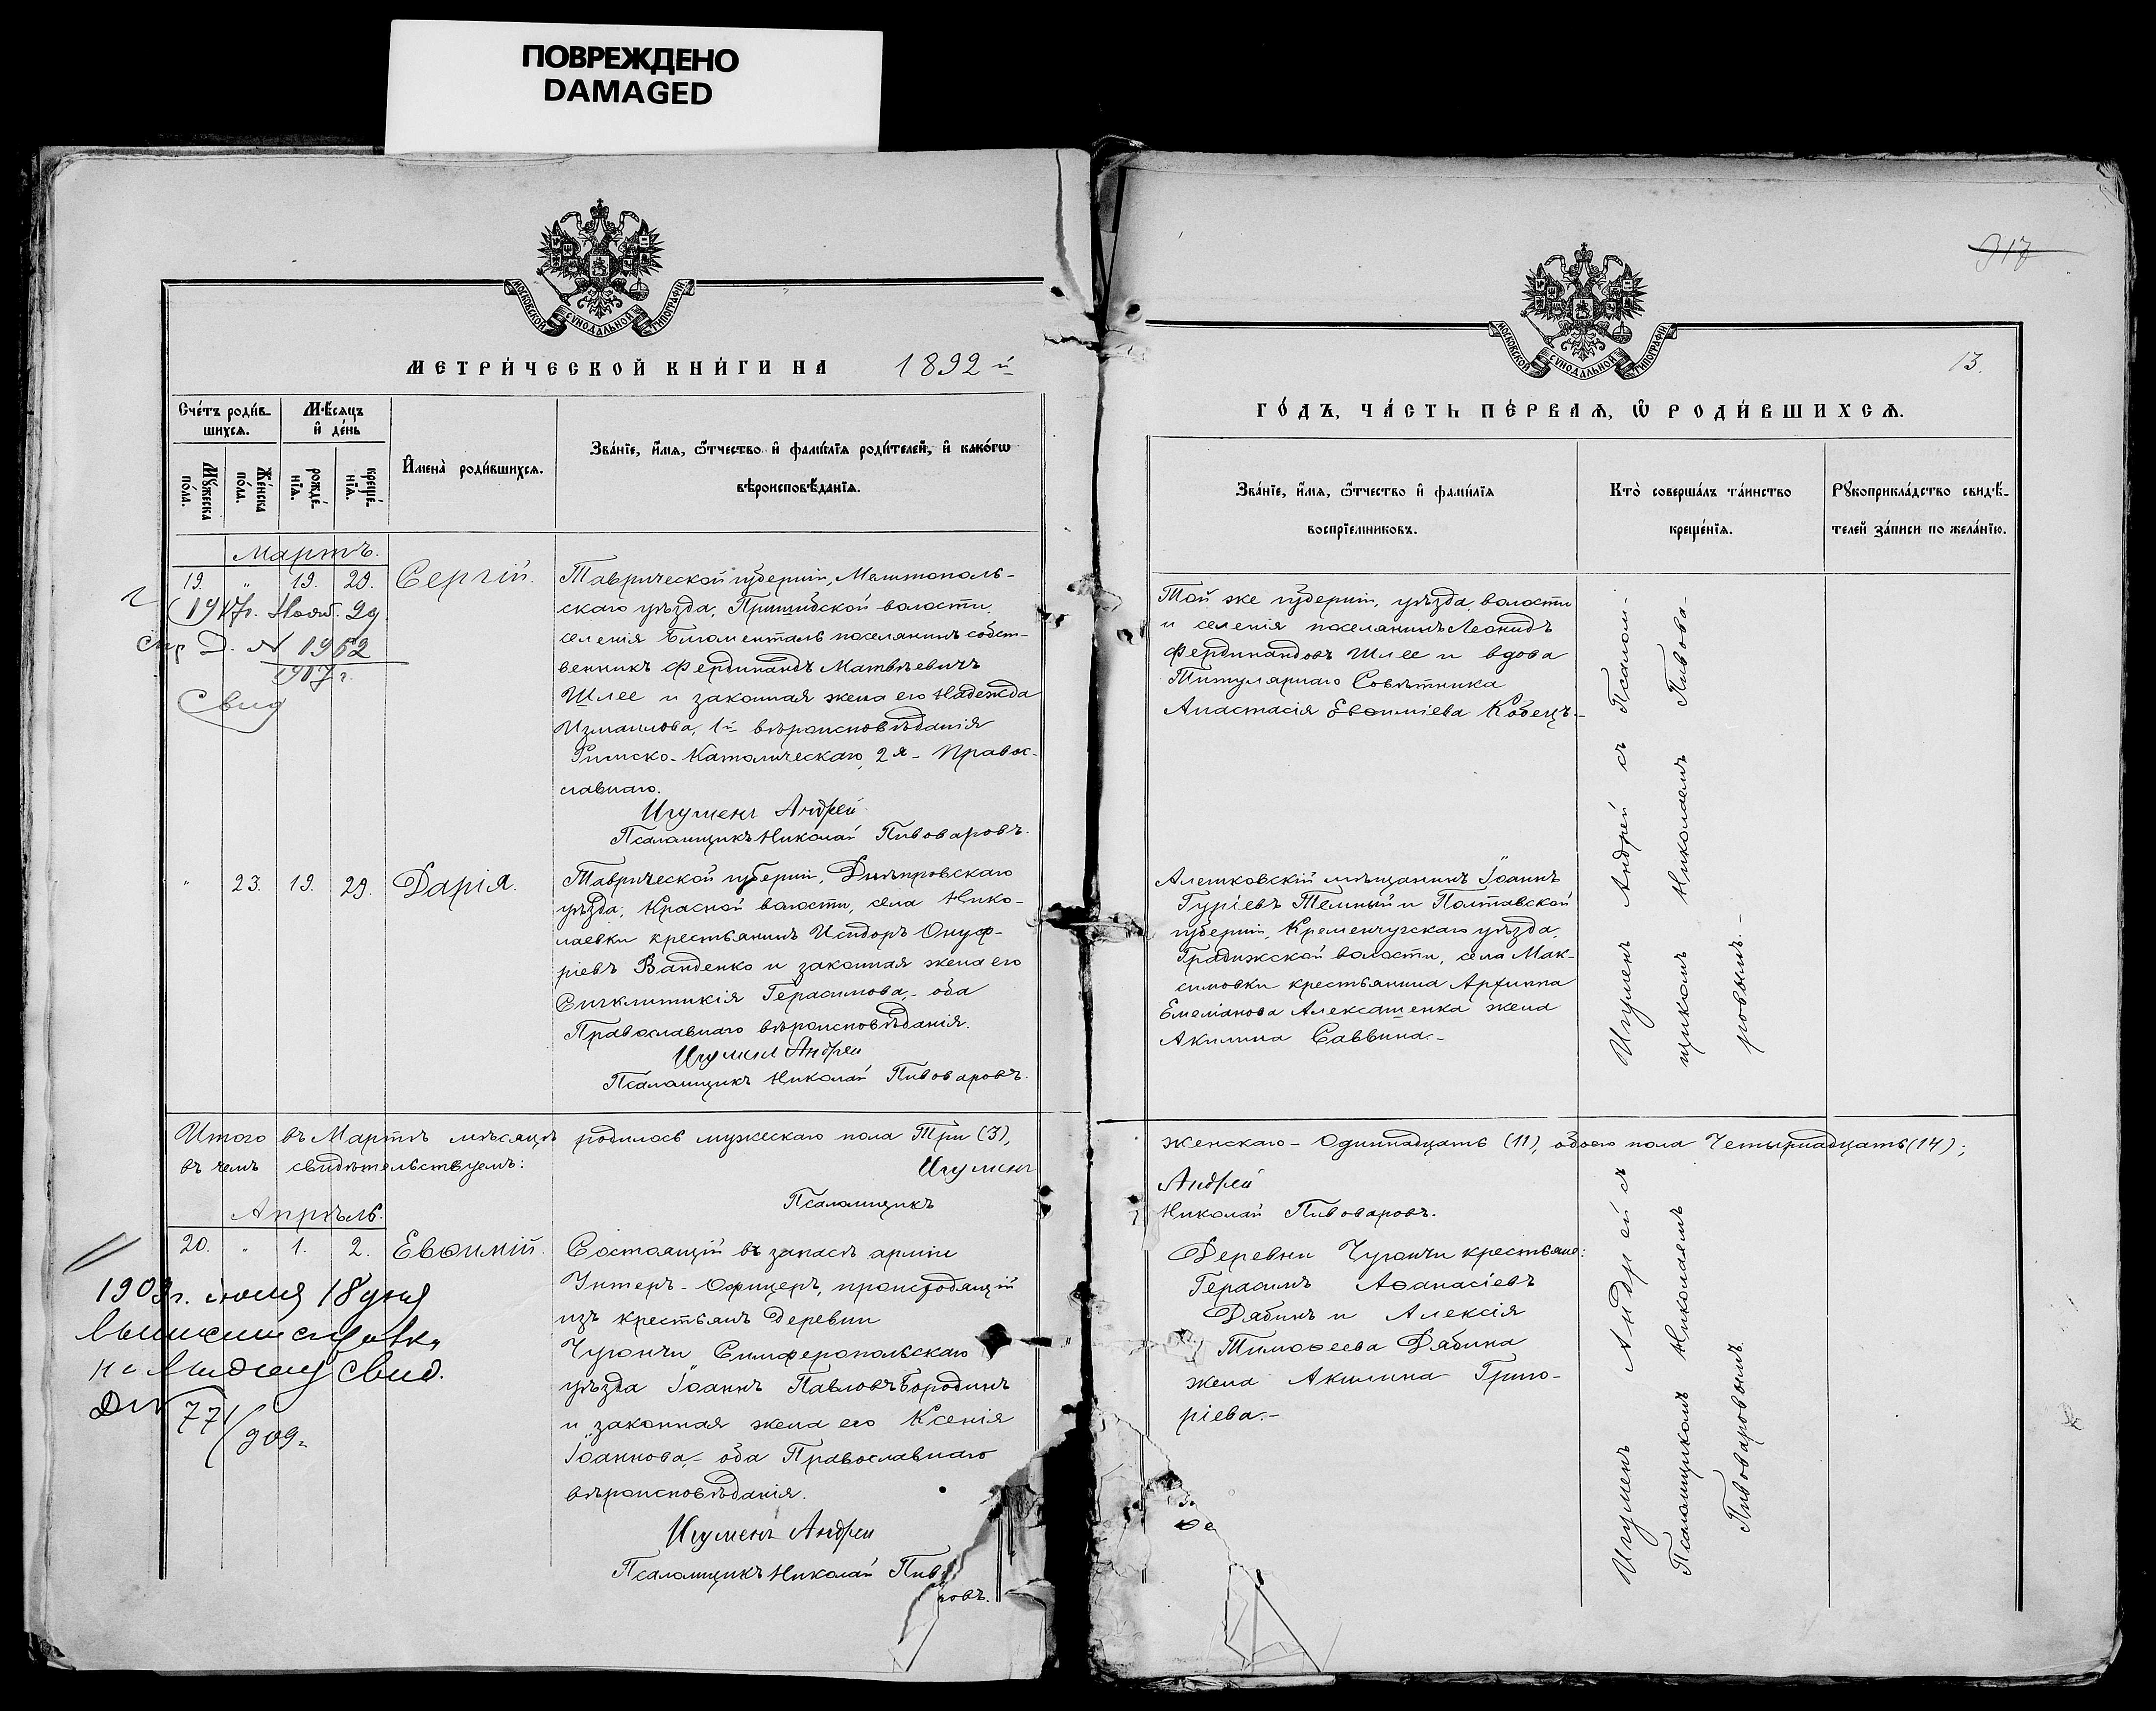 ПОВРЕЖДЕНО
DAMAGED
МОСКОВСКОЙ СУНОДАЛЬНОЙ ТИПОГРАФІИ
МЕТРИ́ЧЕСКОЙ КНИ́ГИ НА 1892 й
Сче́тъ роди́в-
шихсѧ.
Мѣ́сѧцъ
и҆ де́нь
Мꙋ́жеска
по́ла.
Же́нска
по́ла.
рожде́-
нїѧ.
креще́-
нїѧ.
И҆мена̀ роди́вшихсѧ.
Зва́нїе, и҆́мѧ, ѻ҆́тчество и҆ фами́лїѧ роди́телей, и҆ како́гѡ
вѣроисповѣ́данїѧ.
Мартъ.
19. „ 19. 29. Сергій.
Таврической губерніи, Мелитополь-
скаго уѣзда, Пришибской волости,
селенія Блюменталь поселянинъ собст-
венникъ Фердинандъ Матвѣевичъ
Шлее и законная жена его Надежда
Измаилова, 1й вѣроисповѣданія
Римско-Католическаго, 2я - Правос-
лавнаго.
Игуменъ Андрей
Псаломщикъ Николай Пивоваровъ.
1917г. Нояб. 29
Д. № 1952
1917 г.
Свид
„ 23. 19. 29. Дарія.
Таврической губерніи, Днѣпровскаго
уѣзда, Красной волости, села Нико-
лаевки крестьянинъ Исидоръ Онуф-
ріевъ Ванденко и законная жена его
Сигклитикія Герасимова,- оба
Православнаго вѣроисповѣданія.
Игумен Андрей
Псаломщикъ Николай Пивоваровъ.
Итого въ Мартѣ мѣсяцѣ родилось мужескаго пола Три (3),
въ чемъ свидѣтельствуемъ:
Игуменъ
Псаломщикъ
Апрѣль.
20. „ 1. 2. Евѳимій.
Состоящій въ запасѣ арміи
Унтеръ-Офицеръ, происходящій
изъ крестьянъ деревни
Чугончи Симферопольскаго
уѣзда Іоаннъ Павловъ Бородинъ
и законная жена его Ксенія
Іоаннова,- оба Православнаго
вѣроисповѣданія.
Игуменъ Андрей
Псаломщикъ Николай Пив
ровъ.
1909г. іюля 18 дня
свид.
77/909г.
317
МОСКОВСКОЙ СУНОДАЛЬНОЙ ТИПОГРАФІИ
13.
ГО́ДЪ, ЧА́СТЬ ПЕ́РВАѦ, Ѡ҆ РОДИ́ВШИХСѦ.
Зва́нїе, и҆́мѧ, ѻ҆́тчество и҆ фами́лїѧ
воспрїе́мниковъ.
Кто̀ соверша́лъ та́инство
креще́нїѧ.
Рꙋкоприкла́дство свидѣ́-
телей за́писи по жела́нїю.
Той же губерніи, уѣзда, волости
и селенія поселянинъ Леонидъ
Фердинандовъ Шлее и вдова
Титулярнаго Совѣтника
Анастасія Евѳиміева Кобецъ.-
Алешковскій мѣщанинъ Іоаннъ
Гуріевъ Темный и Полтавской
губерніи, Кременчугскаго уѣзда,
Градижской волости, села Мак-
симовки крестьянина Архиппа
Емеліанова Алексашенка жена
Акилина Саввина.-
Игуменъ Андрей съ Псалом-
щикомъ Николаемъ Пивова-
ровымъ.-
женскаго - Одиннадцать (11), обоего пола Четырнадцать (14);
Андрей
Николай Пивоваровъ.
Деревни Чугончи крестьяне:
Герасимъ Аѳанасіевъ
Дябинъ и Алексія
Тимоѳеева Дябина
жена Акилина Григо-
ріева.-
Игуменъ Андрей съ
Псаломщикомъ Николаемъ
Пивоваровымъ.